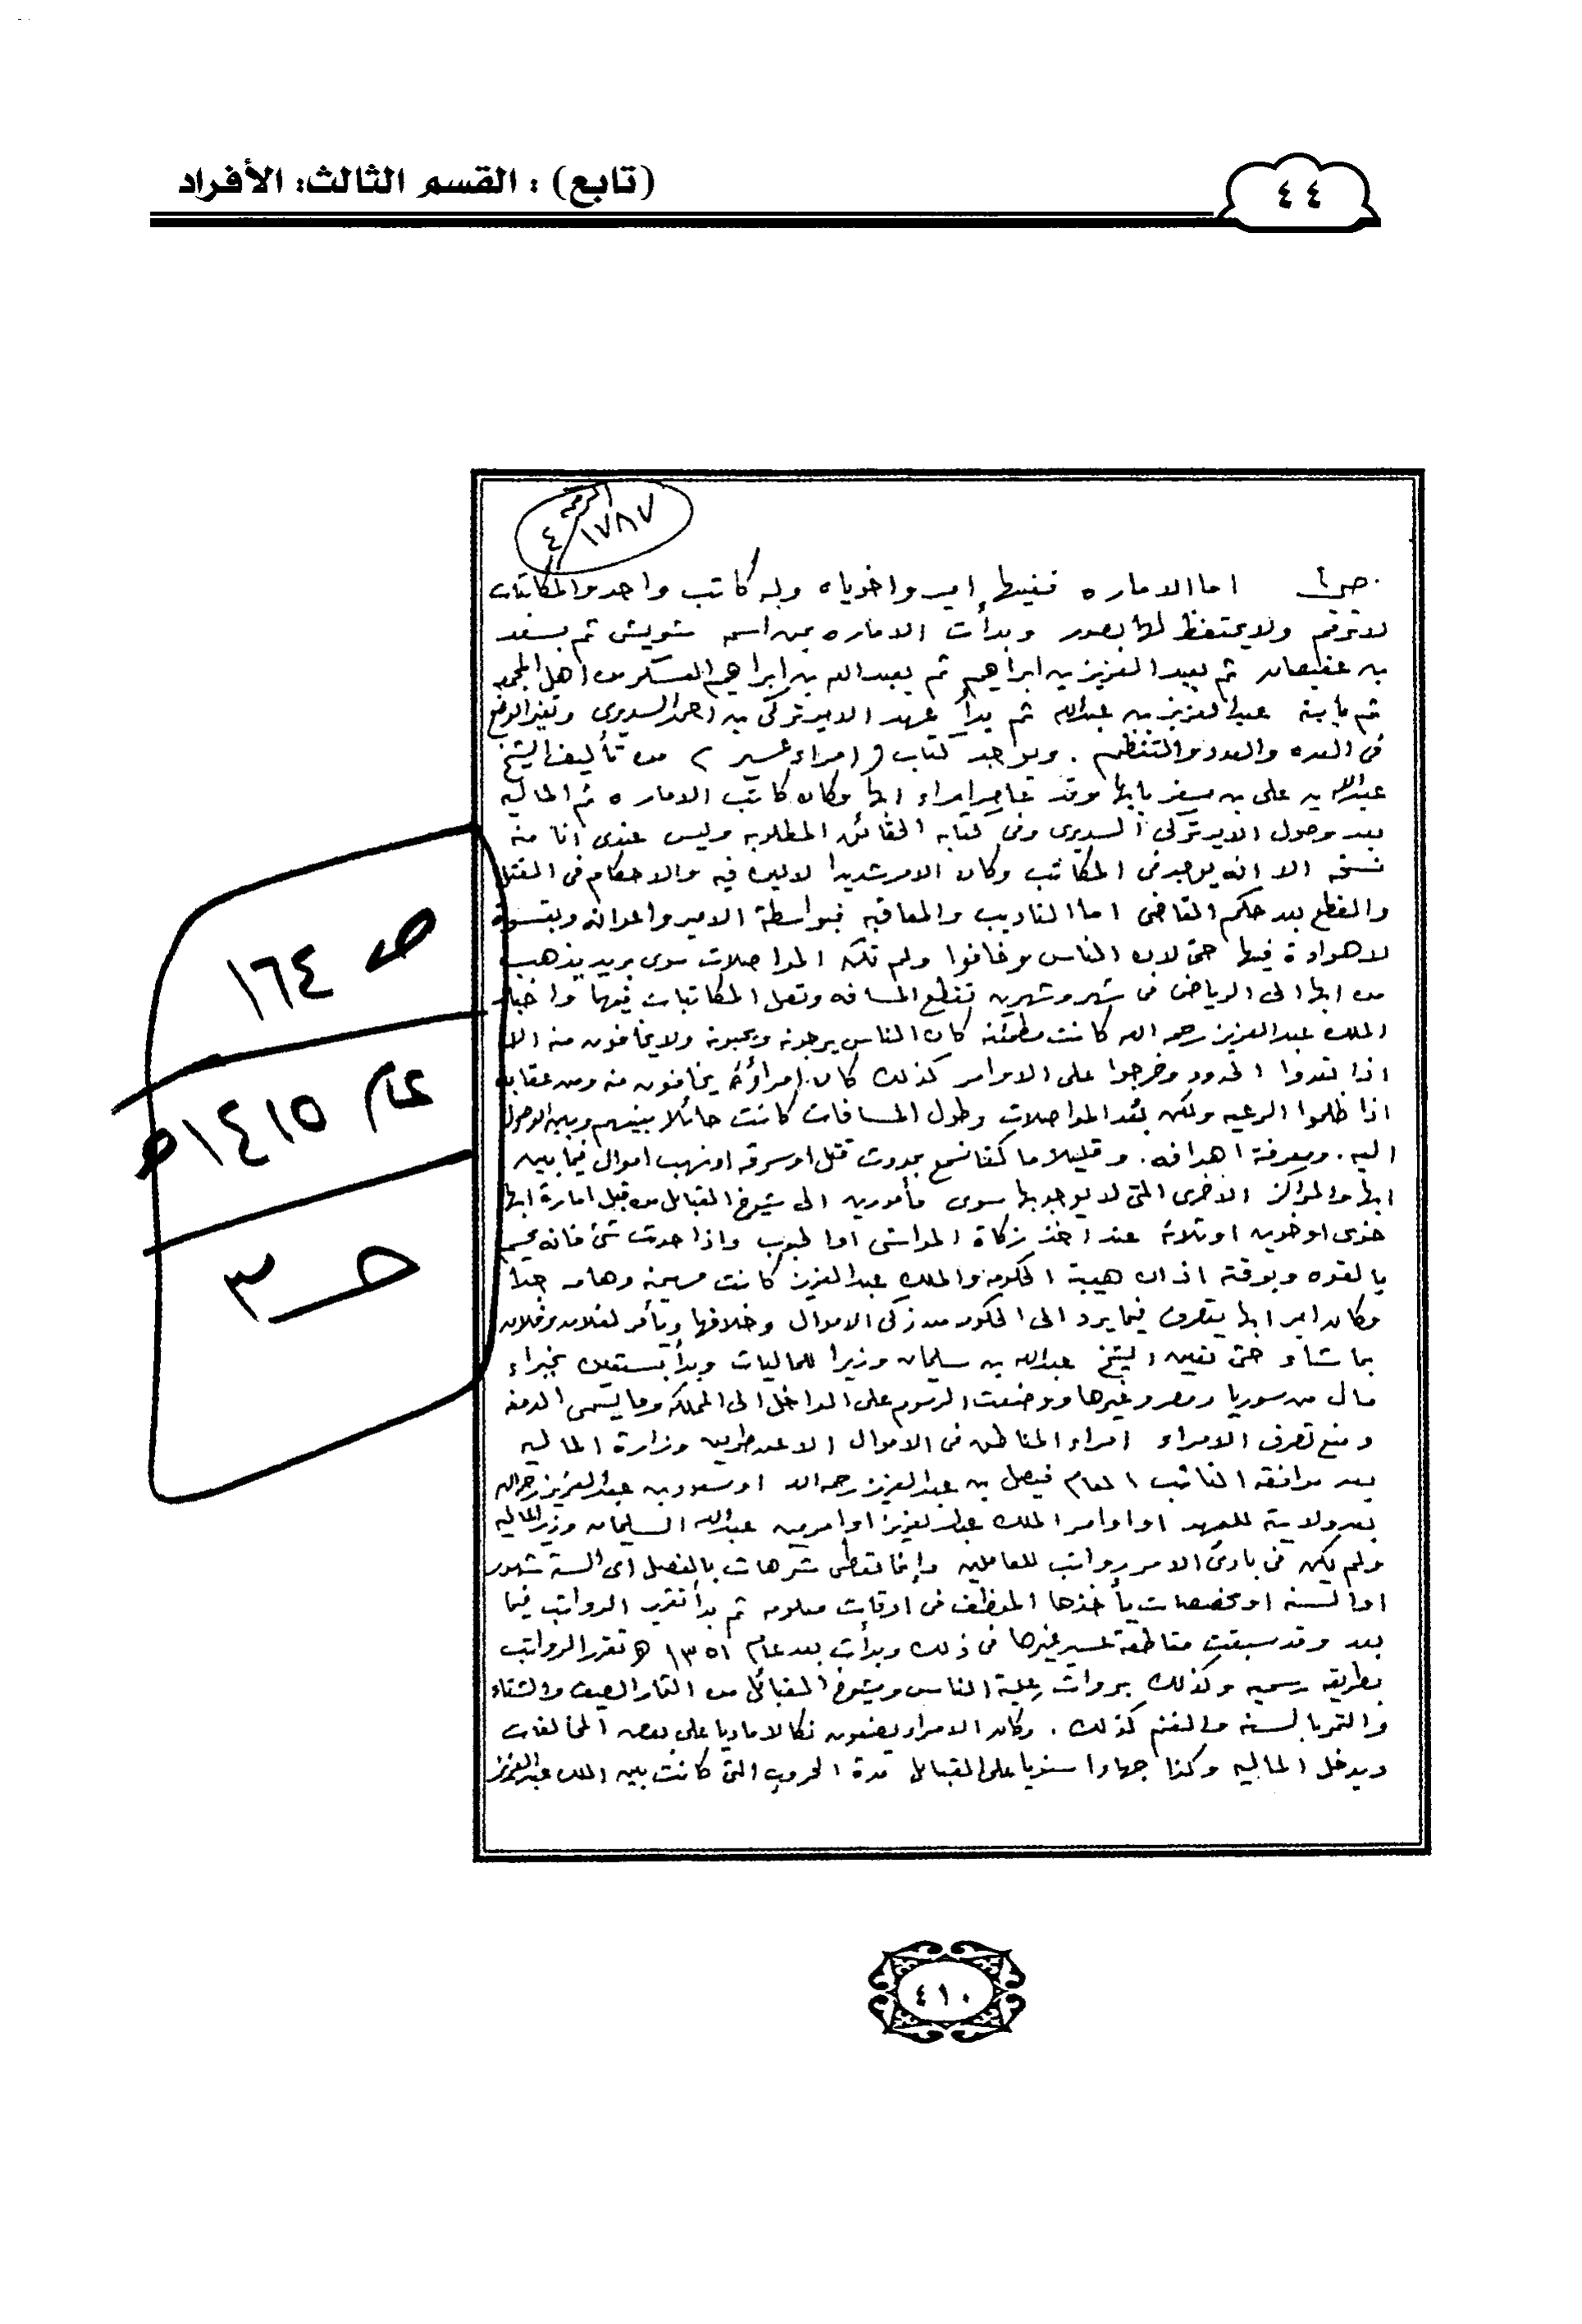 ٤٤
(تابع) : القسم الثالث: الأفراد
الرقم
٤/١٧٨٧
اما الاماره ففيها امير واخوياه وله كاتب واحد والمكاتبات
لا ترقم ولا يحتفظ لها بصور وبدأت الاماره بمن اسمه شويش ثم بسعد
بن عفيصان ثم بعبد العزيز بن ابراهيم ثم بعبد الله بن ابراهيم العسكر من اهل المجمعه
ثم بابنه عبد العزيز بن عبد الله ثم بدأ عهد الامير تركي بن احمد السديري وتغير الوضع
في العده والعدد والتنظيم . ويوجد كتاب ( امراء عسير ) من تأليف الشيخ
عبد الله بن علي بن مسفر بابها وقد عاصر امراء ابها وكان كاتب الاماره ثم الماليه
بعد وصول الامير تركي السديري وفي كتابه الحقائق المطلوبه وليس عندي انا منه
نسخه الا انه يوجد في المكاتب وكان الامر شديدا لا لين فيه والاحكام في القتل
والقطع بعد حكم القاضي اما التاديب والمعاقبه فبواسطة الامير واعوانه وبقسوة
لا هوادة فيها حتى لان الناس وخافوا ولم تكن المواصلات سوى بريد يذهب
من ابها الى الرياض في شهر وشهرين تقطع المسافه وتصل المكاتبات فيها واخبار
الملك عبد العزيز رحمه الله كانت مطمئنه كان الناس يرجونه ويحبونه ولا يخافون منه الا
اذا تعدوا الحدود وخرجوا على الاوامر كذلك كان امراؤه يخافون منه ومن عقابه
اذا ظلموا الرعيه ولكن بعد المواصلات وطول المسافات كانت حائلا بينهم وبين الوصول
اليه . ومعرفة اهدافه . وقليلا ما كنا نسمع بحدوث قتل او سرقه او نهب اموال فيما بين
ابها والمراكز الاخرى التي لا يوجد بها سوى مأمورين الى شيوخ القبائل من قبل امارة ابها
خوي او خوين او ثلاثه عند اخذ زكاة المواشي او الحبوب واذا حدث شئ فانه يحسم
بالقوه وبوقته اذ ان هيبة الحكومه والملك عبد العزيز كانت مهيمنه وهامه جدا
وكان امير ابها يتصرف فيما يرد الى الحكومه من زكى الاموال وخلافها ويأمر لفلان وفلان
بما شاء حتى تعين الشيخ عبد الله بن سليمان وزيرا للماليات وبدأ يستعين بخبراء
مال من سوريا ومصر وغيرها ووضعت الرسوم على الداخل الى المملكه وما يسمى الدمغه
ومنع تصرف الامراء امراء المناطق في الاموال الا عن طريق وزارة الماليه
بعد موافقه النائب العام فيصل بن عبد العزيز رحمه الله او سعود بن عبد العزيز رحمه الله
بعد ولايته للعهد او اوامر الملك عبد العزيز او امر من عبد الله السليمان وزير الماليه
ولم يكن في بادئ الامر رواتب للعاملين وإنما تعطى شرهات بالفصل اي الستة شهور
او السنه او مخصصات يأخذها الموظف في اوقات معلومه ثم بدأ تقرير الرواتب فيما
بعد وقد سبقت مقاطعة عسير غيرها في ذلك وبدأت بعد عام ١٣٥١ هـ تقرر الرواتب
بطريقه رسميه وكذلك بروات علية الناس وشيوخ القبائل من الثمار الصيف والشتاء
والتمر بالسنه والغنم كذلك . وكان الامراء يضعون نكالا ماديا على بعض المخالفات
ويدخل الماليه وكذا جهادا سنويا على القبائل مدة الحروب التي كانت بين الملك عبد العزيز
ص ١٦٤
عام ١٤١٥ هـ
حـ ٣
٤١٠